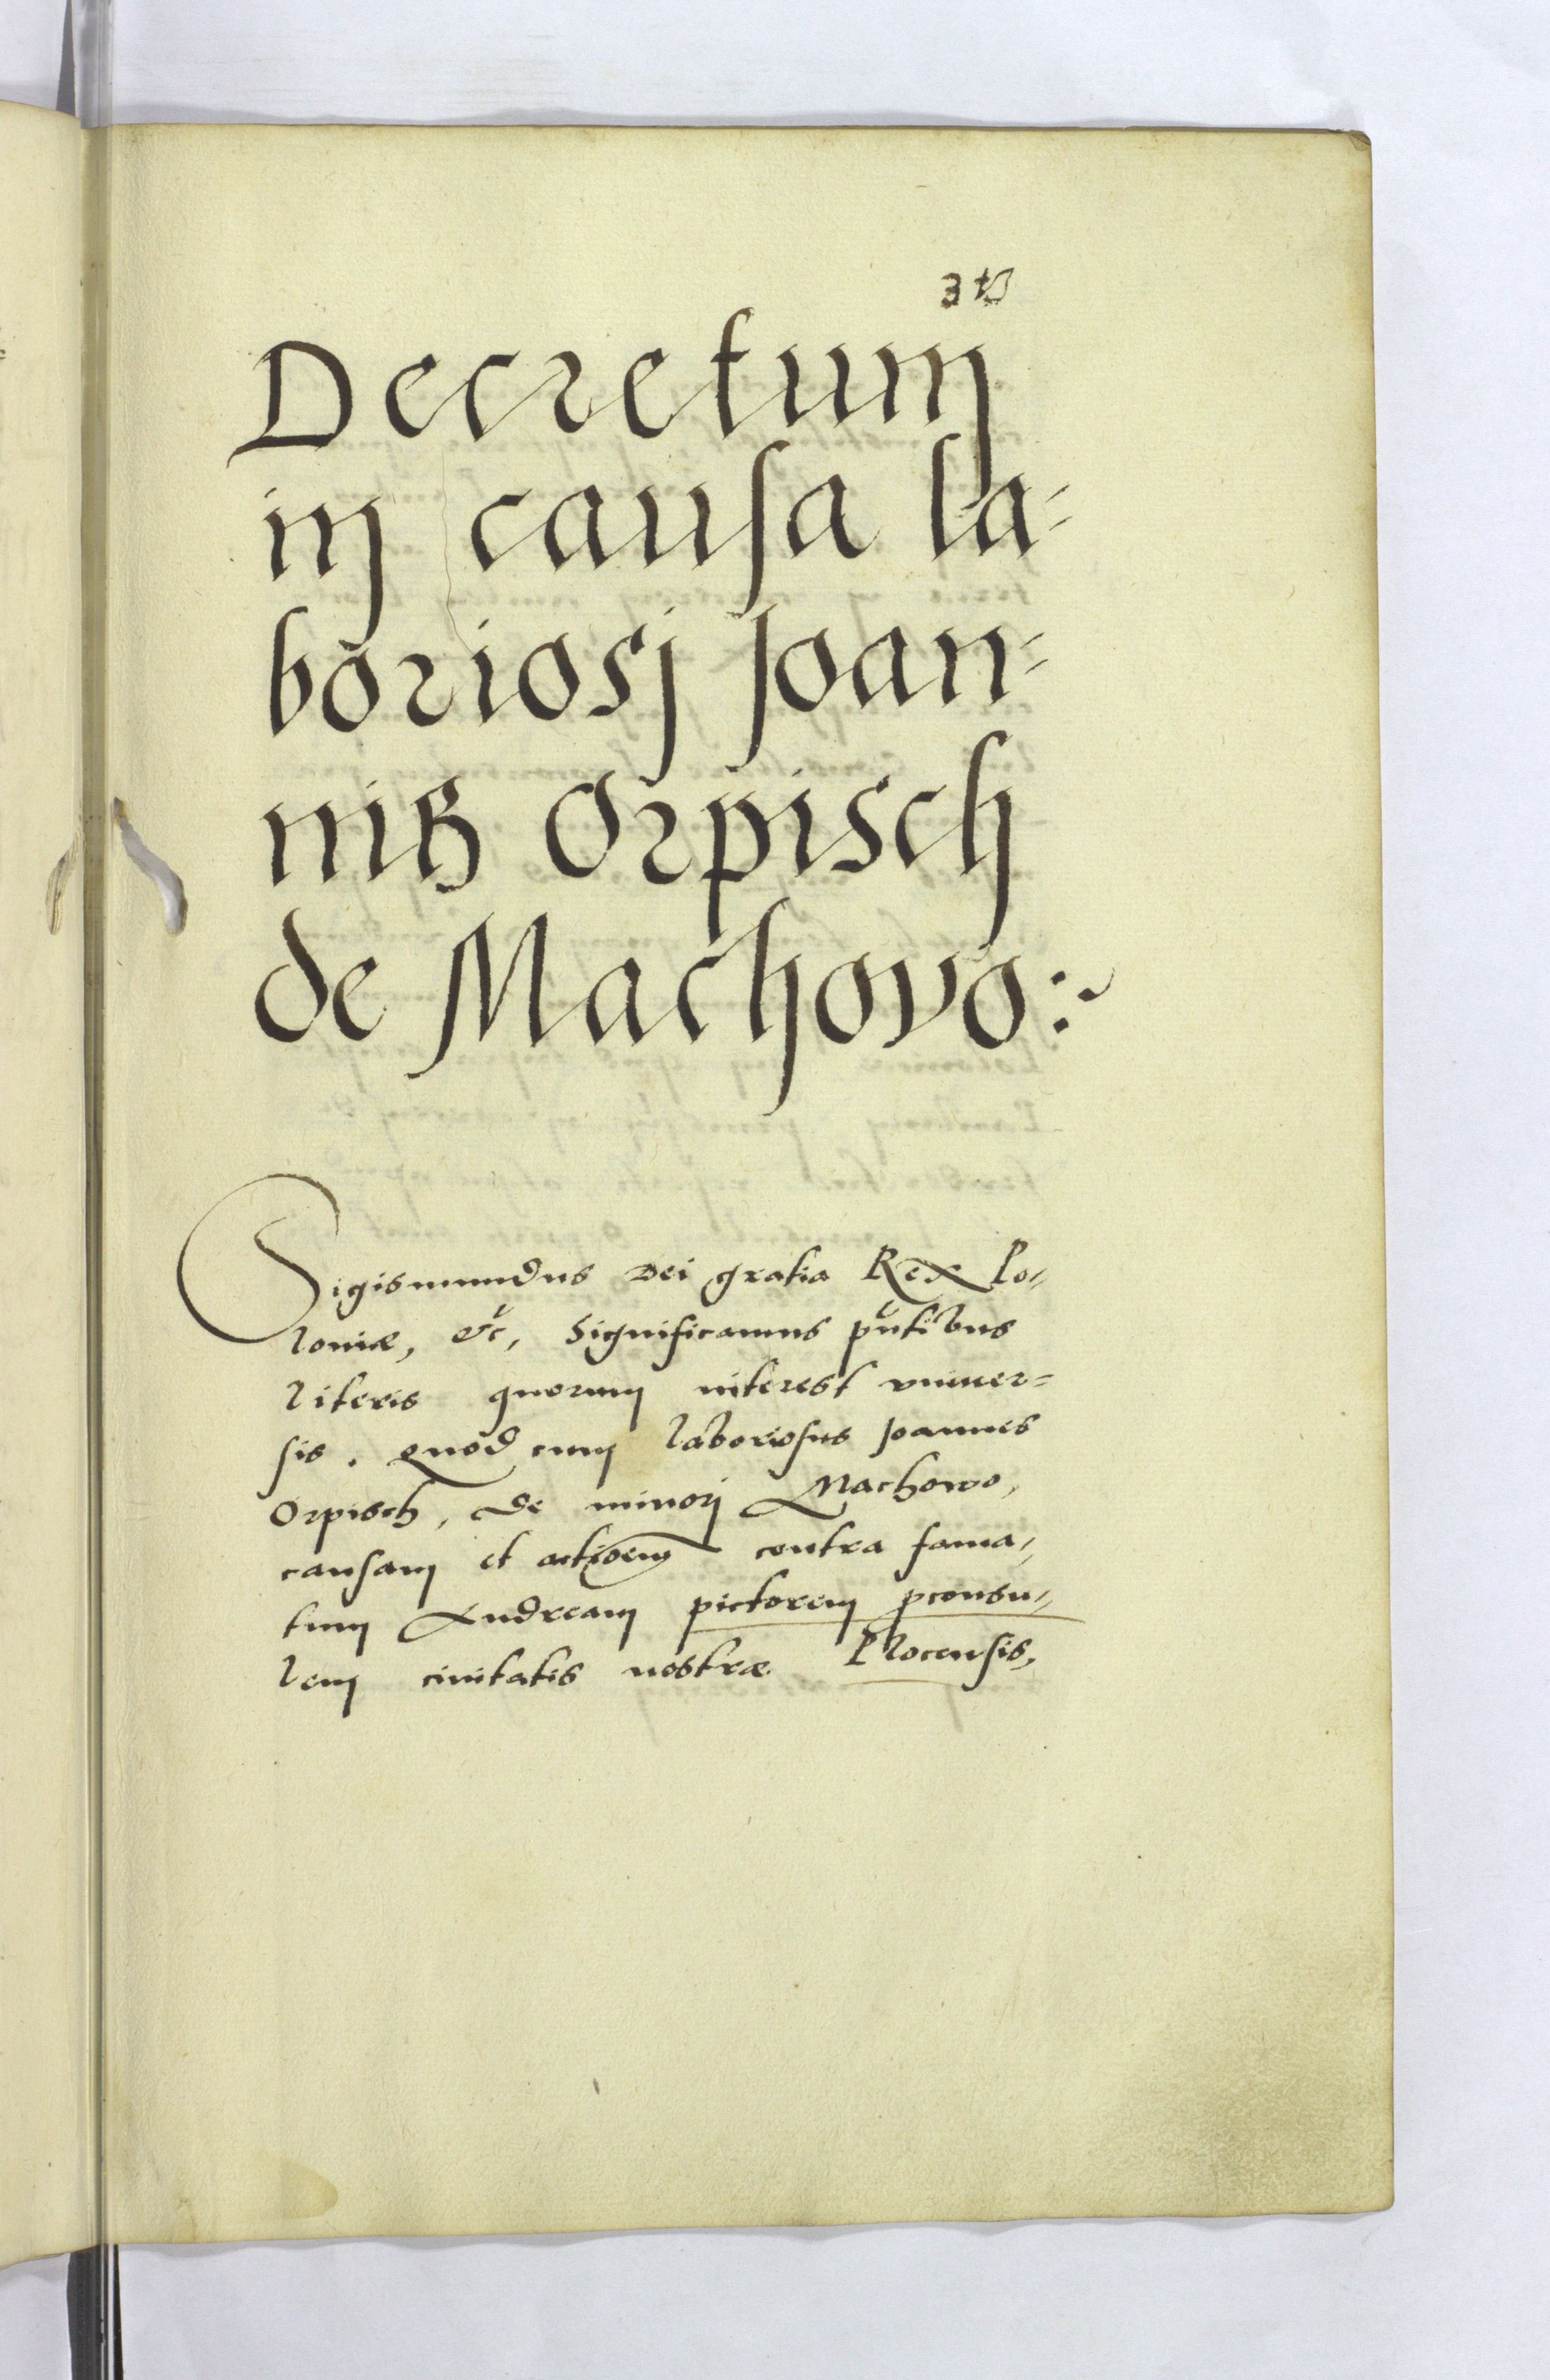 Decretum
in causa la-
boriosj Joan-
nis Orpisch
de Machovo:~
Sigismundus Dei gratia Rex Po-
loniæ, etc, Significamus pntibus
literis quorum interest vniuer=
sis. Quod cum laboriosus Joannes
Orpisch, de minorj Machowo,
causam et actioem contra fama-
tum Andream pictorem pconsu-
lem ciuitatis nostræ Plocensis,